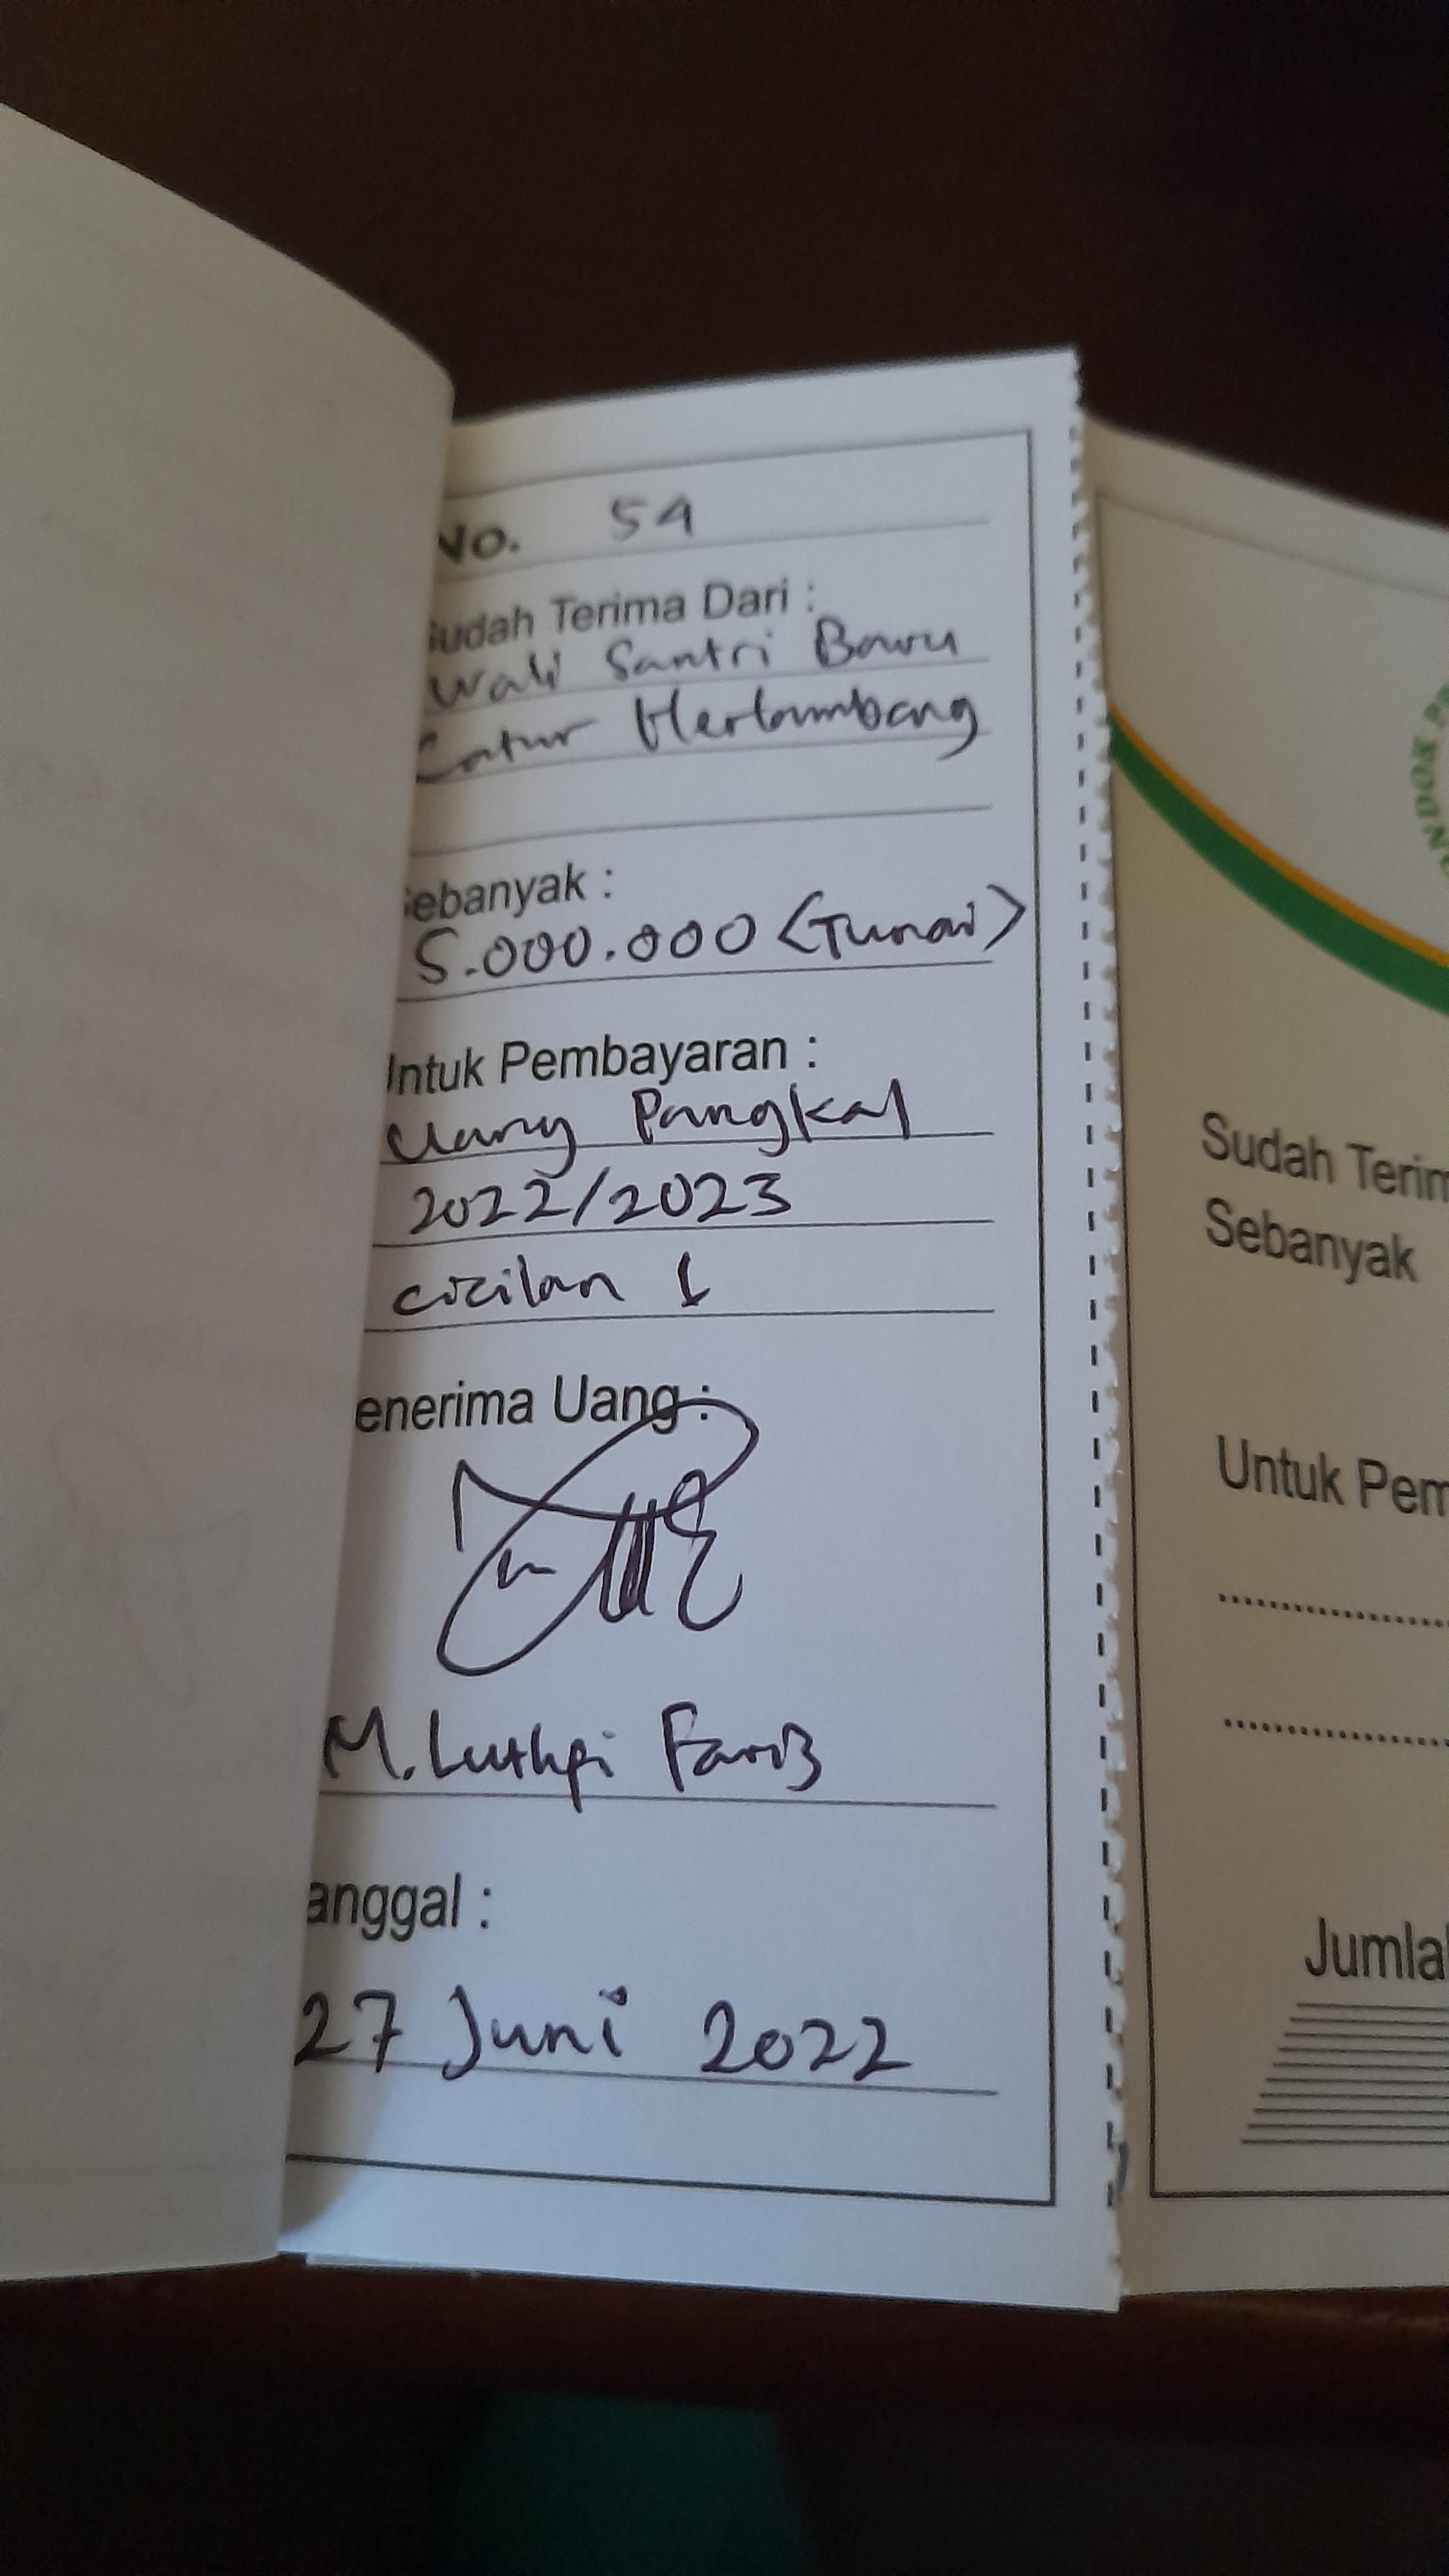 No. 54
Sudah Terima Dari :
Wali Santri Bayu
Catur Herlambang
Sebanyak :
5.000.000 (Tunai)
Untuk Pembayaran :
Uang Pangkal
2022/2023
cicilan 1
enerima Uang :
M. Luthfi Fariz
anggal :
27 Juni 2022
Sudah Terim
Sebanyak
Untuk Pem
Jumla